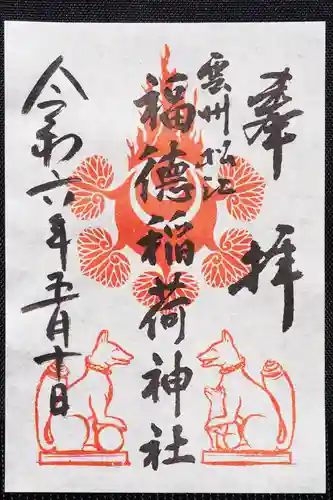 奉拝
雲州松江
福徳稲荷神社
令和六年五月十日